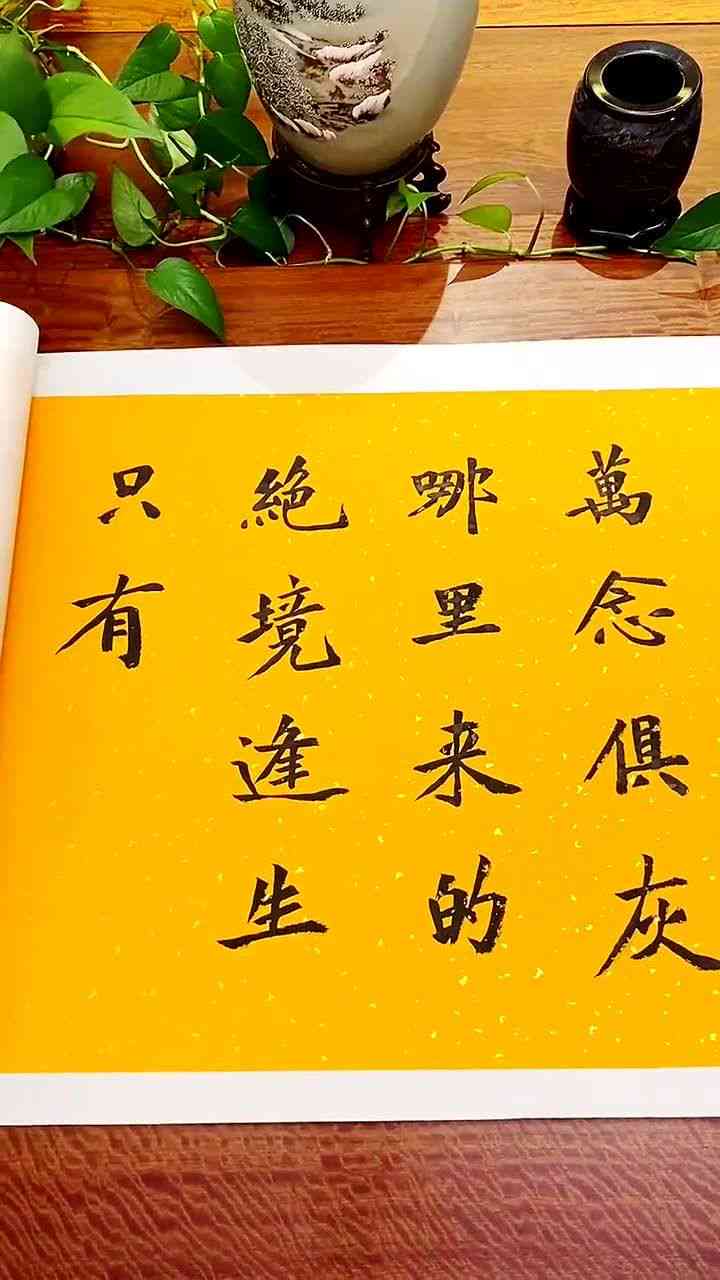 萬念俱灰
哪里来的
絶境逢生
只有